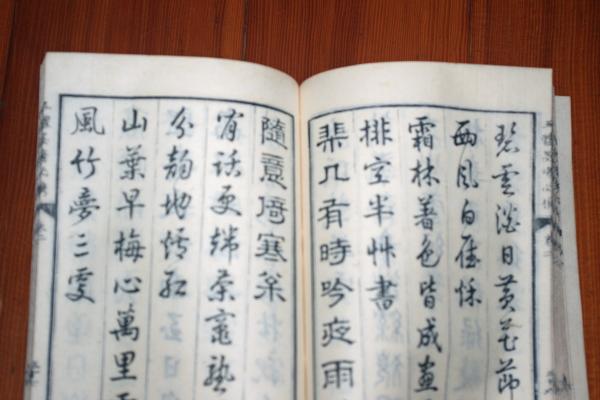 碧雲澹日黄花節
西風白雁
霜林著色皆成畫
排空半艸書
棐几有時吟夜雨
隨意倚寒
宵話更端茶竈熟
分韵地爐紅
山葉早梅心萬里
風竹夢三更